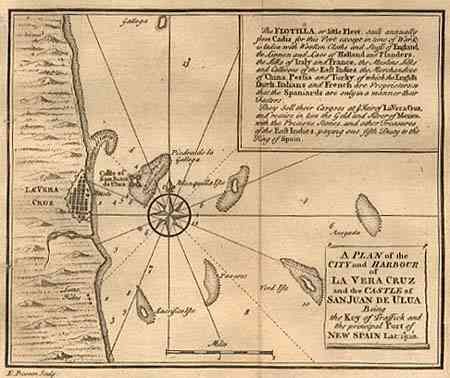 Gallega
The FLOTILLA, or little Fleet, sail annually
from Cadiz for this Port except in time of War;
is laden with Woollen Cloths and Stuffs of England,
the Linnen and Lace of Holland and Flanders,
the Silks of Italy and France, the Muslins Silks
and Callicoes of the East Indies, the Merchandizes
of China, Persia and Turky, of which the English
Dutch, Italians and French are Proprietors, so
that the Spaniards are only in a manner their
Factors.
They sell their Cargoes at ye Fair of La Vera Cruz,
and receive in lieu the Gold and Silver of Mexico
with the Precious Stones, and other Treasures
of the East Indies, paying one fifth Duty to the
King of Spain.
Piedras de la
Gallega
Castle of
San Juan
de Ulua
Blanquilla Isle
LA VERA
CRUZ
Anegada
A PLAN of the
CITY and HARBOUR
of
LA VERA CRUZ
and the CASTLE of
SAN JUAN DE ULUA
Being
the Key of Traffick and
the principal Port of
NEW SPAIN
Paxaros
Verd Isle
Sacrifice Isle
Miles
E. Bowen Sculp.